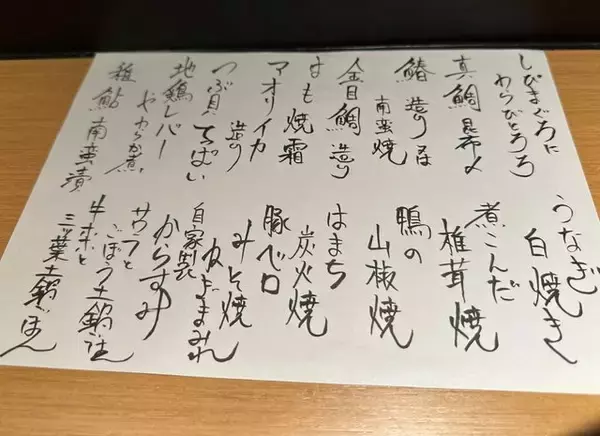 しびまぐろに
わらびとろろ
真鯛昆布〆
鰆造り又は
南蛮焼
金目鯛造り
はも焼霜
アオリイカ
造り
つぶ貝てっぱい
地鶏レバー
やわらか煮
稚鮎南蛮漬
うなぎ
白焼き
煮こんだ
椎茸焼
鴨の
山椒焼
はまち
炭火焼
豚ベロ
みそ焼
自家製
からすみ
ねぎまみれ
サワラと
ごぼう土鍋
牛ホホと
三ッ葉土鍋ごはん